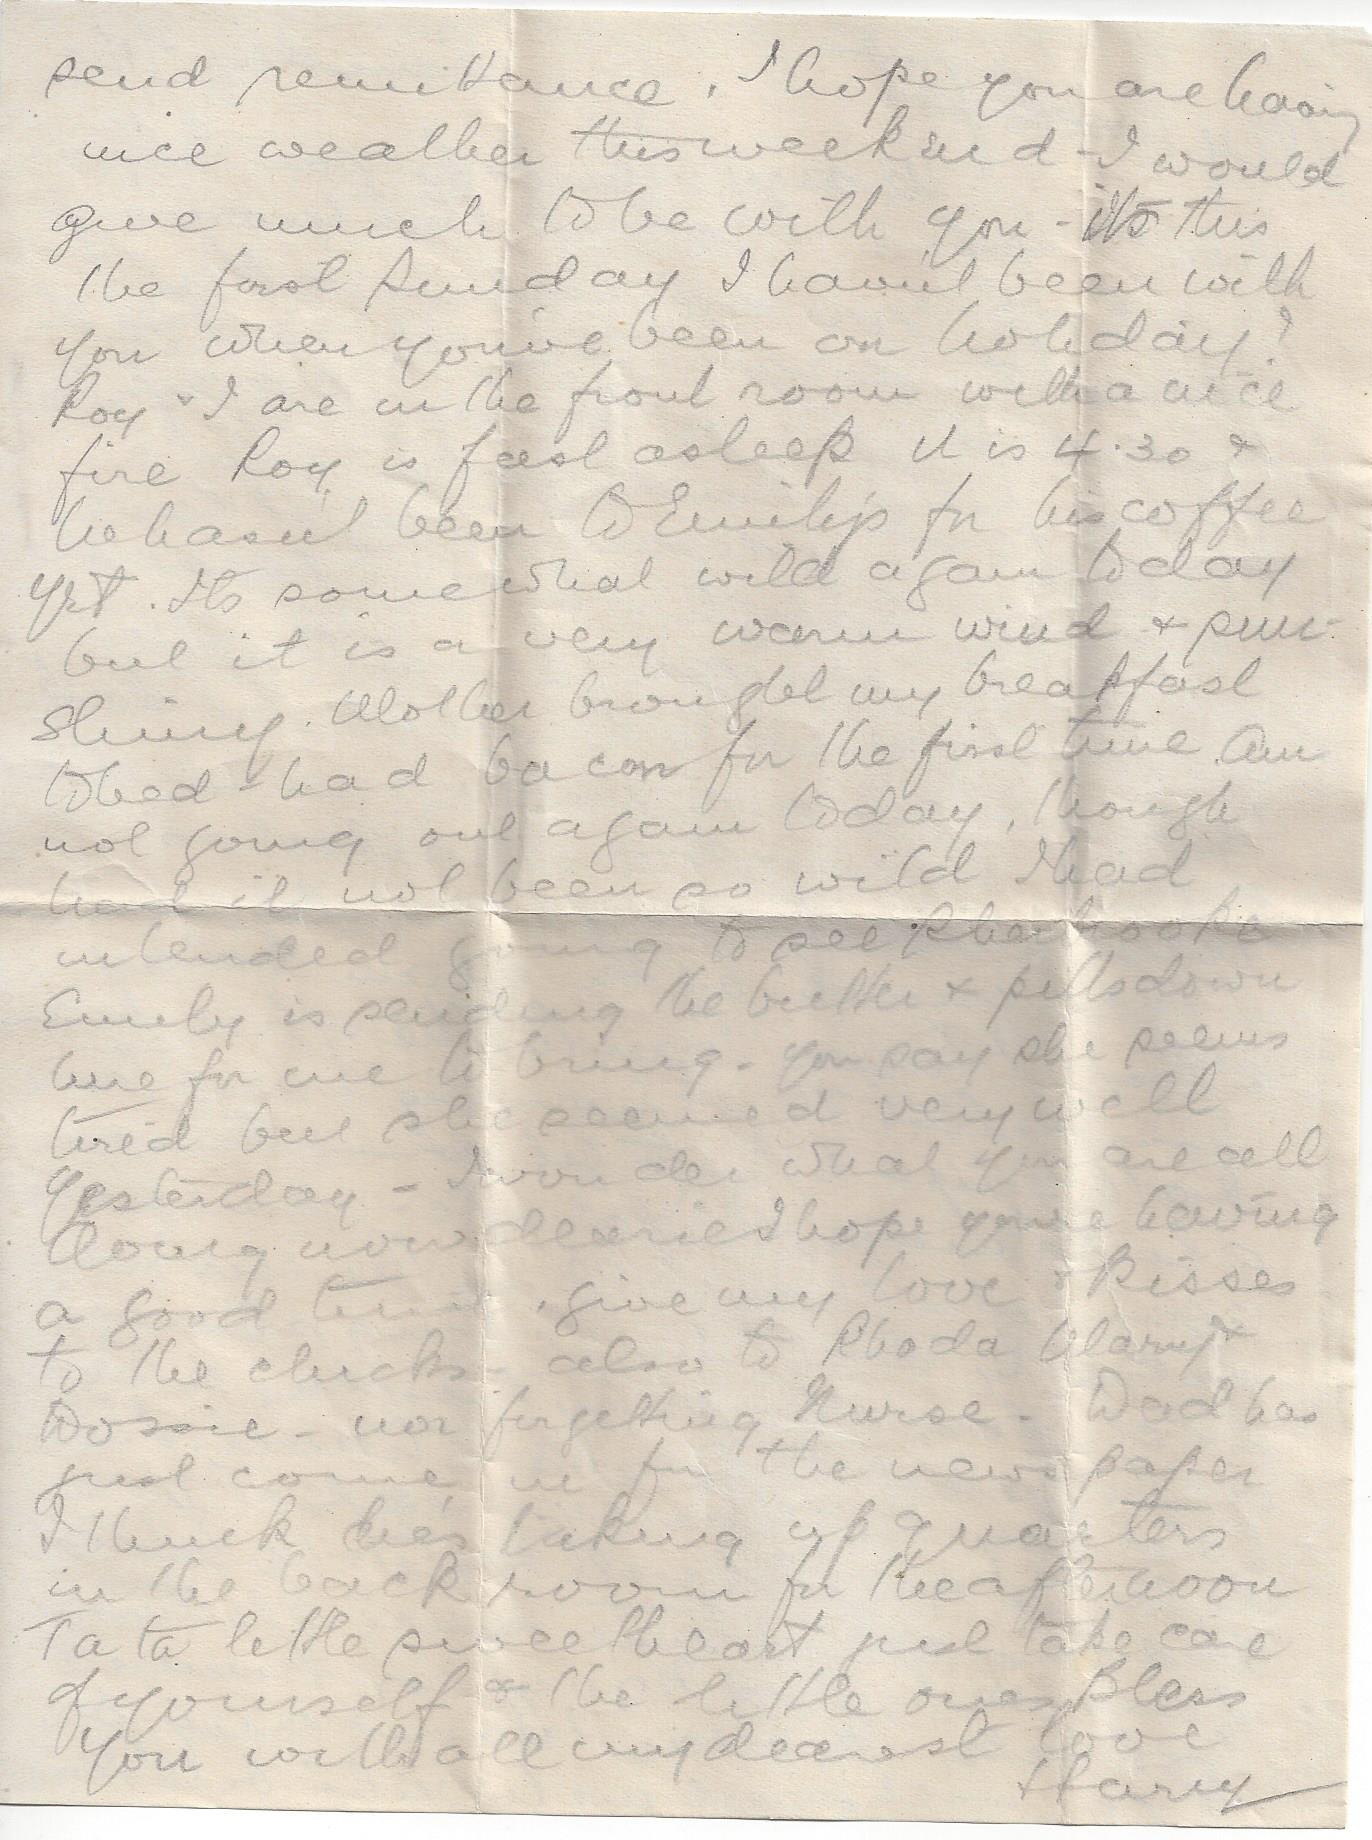 send remittance. I hope you are having
nice weather this weekend - I would
give much to be with you - its this
the first Sunday I havn't been with
you when you've been on holiday?
Roy & I are in the front room with a nice
fire Roy is fast asleep it is 4.30 &
he hasn't been to Emily's for his coffee
yet. Its somewhat wild again today
but it is a very warm wind & sun-
shiny. Mother brought my breakfast
to bed - had bacon for the first time Am
not going out again today, though
had it not been so wild I had
intended going to see
Emily is sending the butter & pills down
here for me to bring - you say she seems
tired but she seemed very well
yesterday - I wonder what you are all
doing now dearie I hope you're having
a good time, give my love & kisses
to the chicks - also to Rhoda Mary &
Dossie - nor forgetting Nurse - Dad has
just come in for the newspaper
I think he's taking up quarters
in the back room for the afternoon
Ta ta little sweetheart just take care
of yourself & the little ones, Bless
you with all my dearest love
Harry